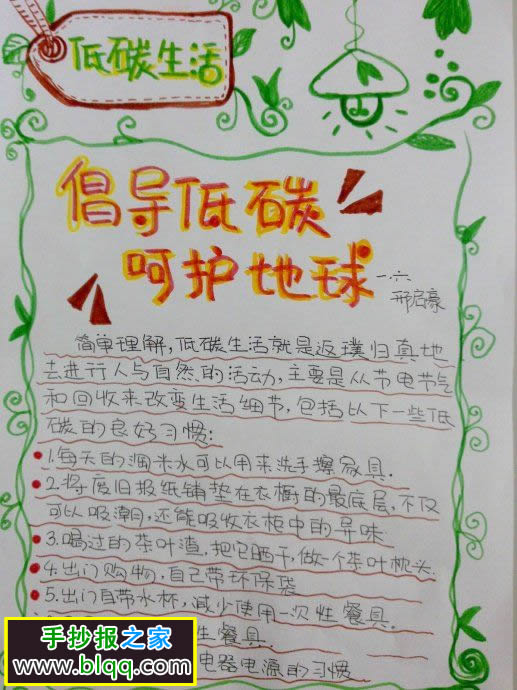 低碳生活
倡导低碳
呵护地球
一.六
邢启豪
简单理解,低碳生活就是返璞归真地
去进行人与自然的活动,主要是从节电节气
和回收来改变生活细节,包括以下一些低
碳的良好习惯:
1.每天的淘米水可以用来洗手擦家具.
2.将废旧报纸铺垫在衣橱的最底层,不仅
可以吸潮,还能吸收衣柜中的异味.
3.喝过的茶叶渣,把它晒干,做一个茶叶枕头.
4.出门购物,自己带环保袋
5.出门自带水杯,减少使用一次性餐具.
生餐具.
电器电源的习惯
手抄报之家
www.blqq.com